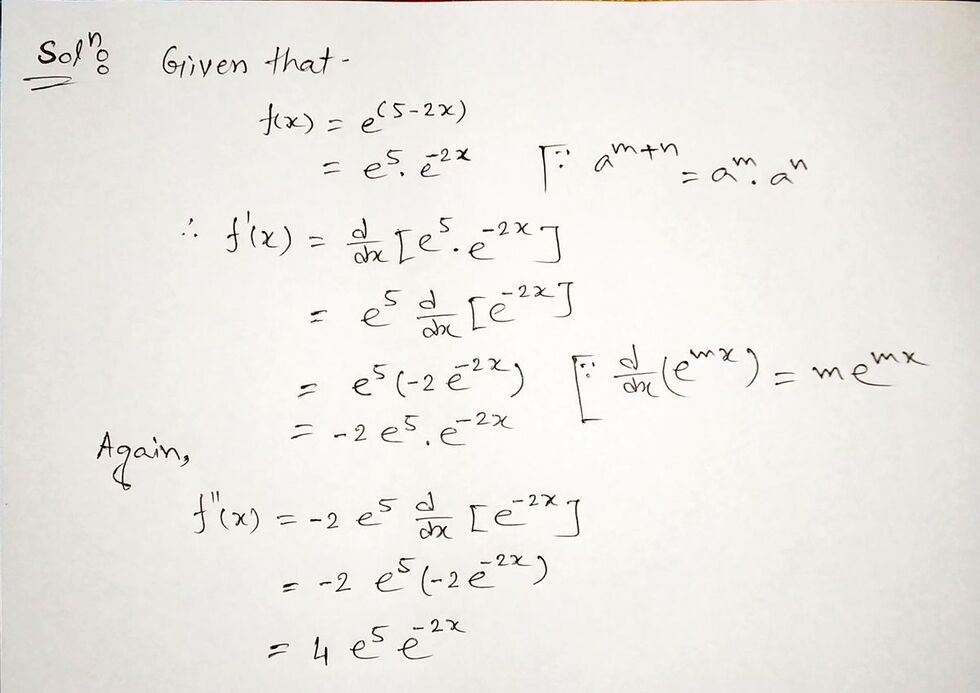 Solⁿ: Given that -
f(x) = e^(5-2x)
= e^5 . e^-2x [∵ a^m+n = a^m . a^n
∴ f'(x) = d/dx [e^5 . e^-2x]
= e^5 d/dx [e^-2x]
= e^5 (-2 e^-2x) [∵ d/dx (e^mx) = m e^mx
= -2 e^5 . e^-2x
Again,
f''(x) = -2 e^5 d/dx [e^-2x]
= -2 e^5 (-2 e^-2x)
= 4 e^5 e^-2x